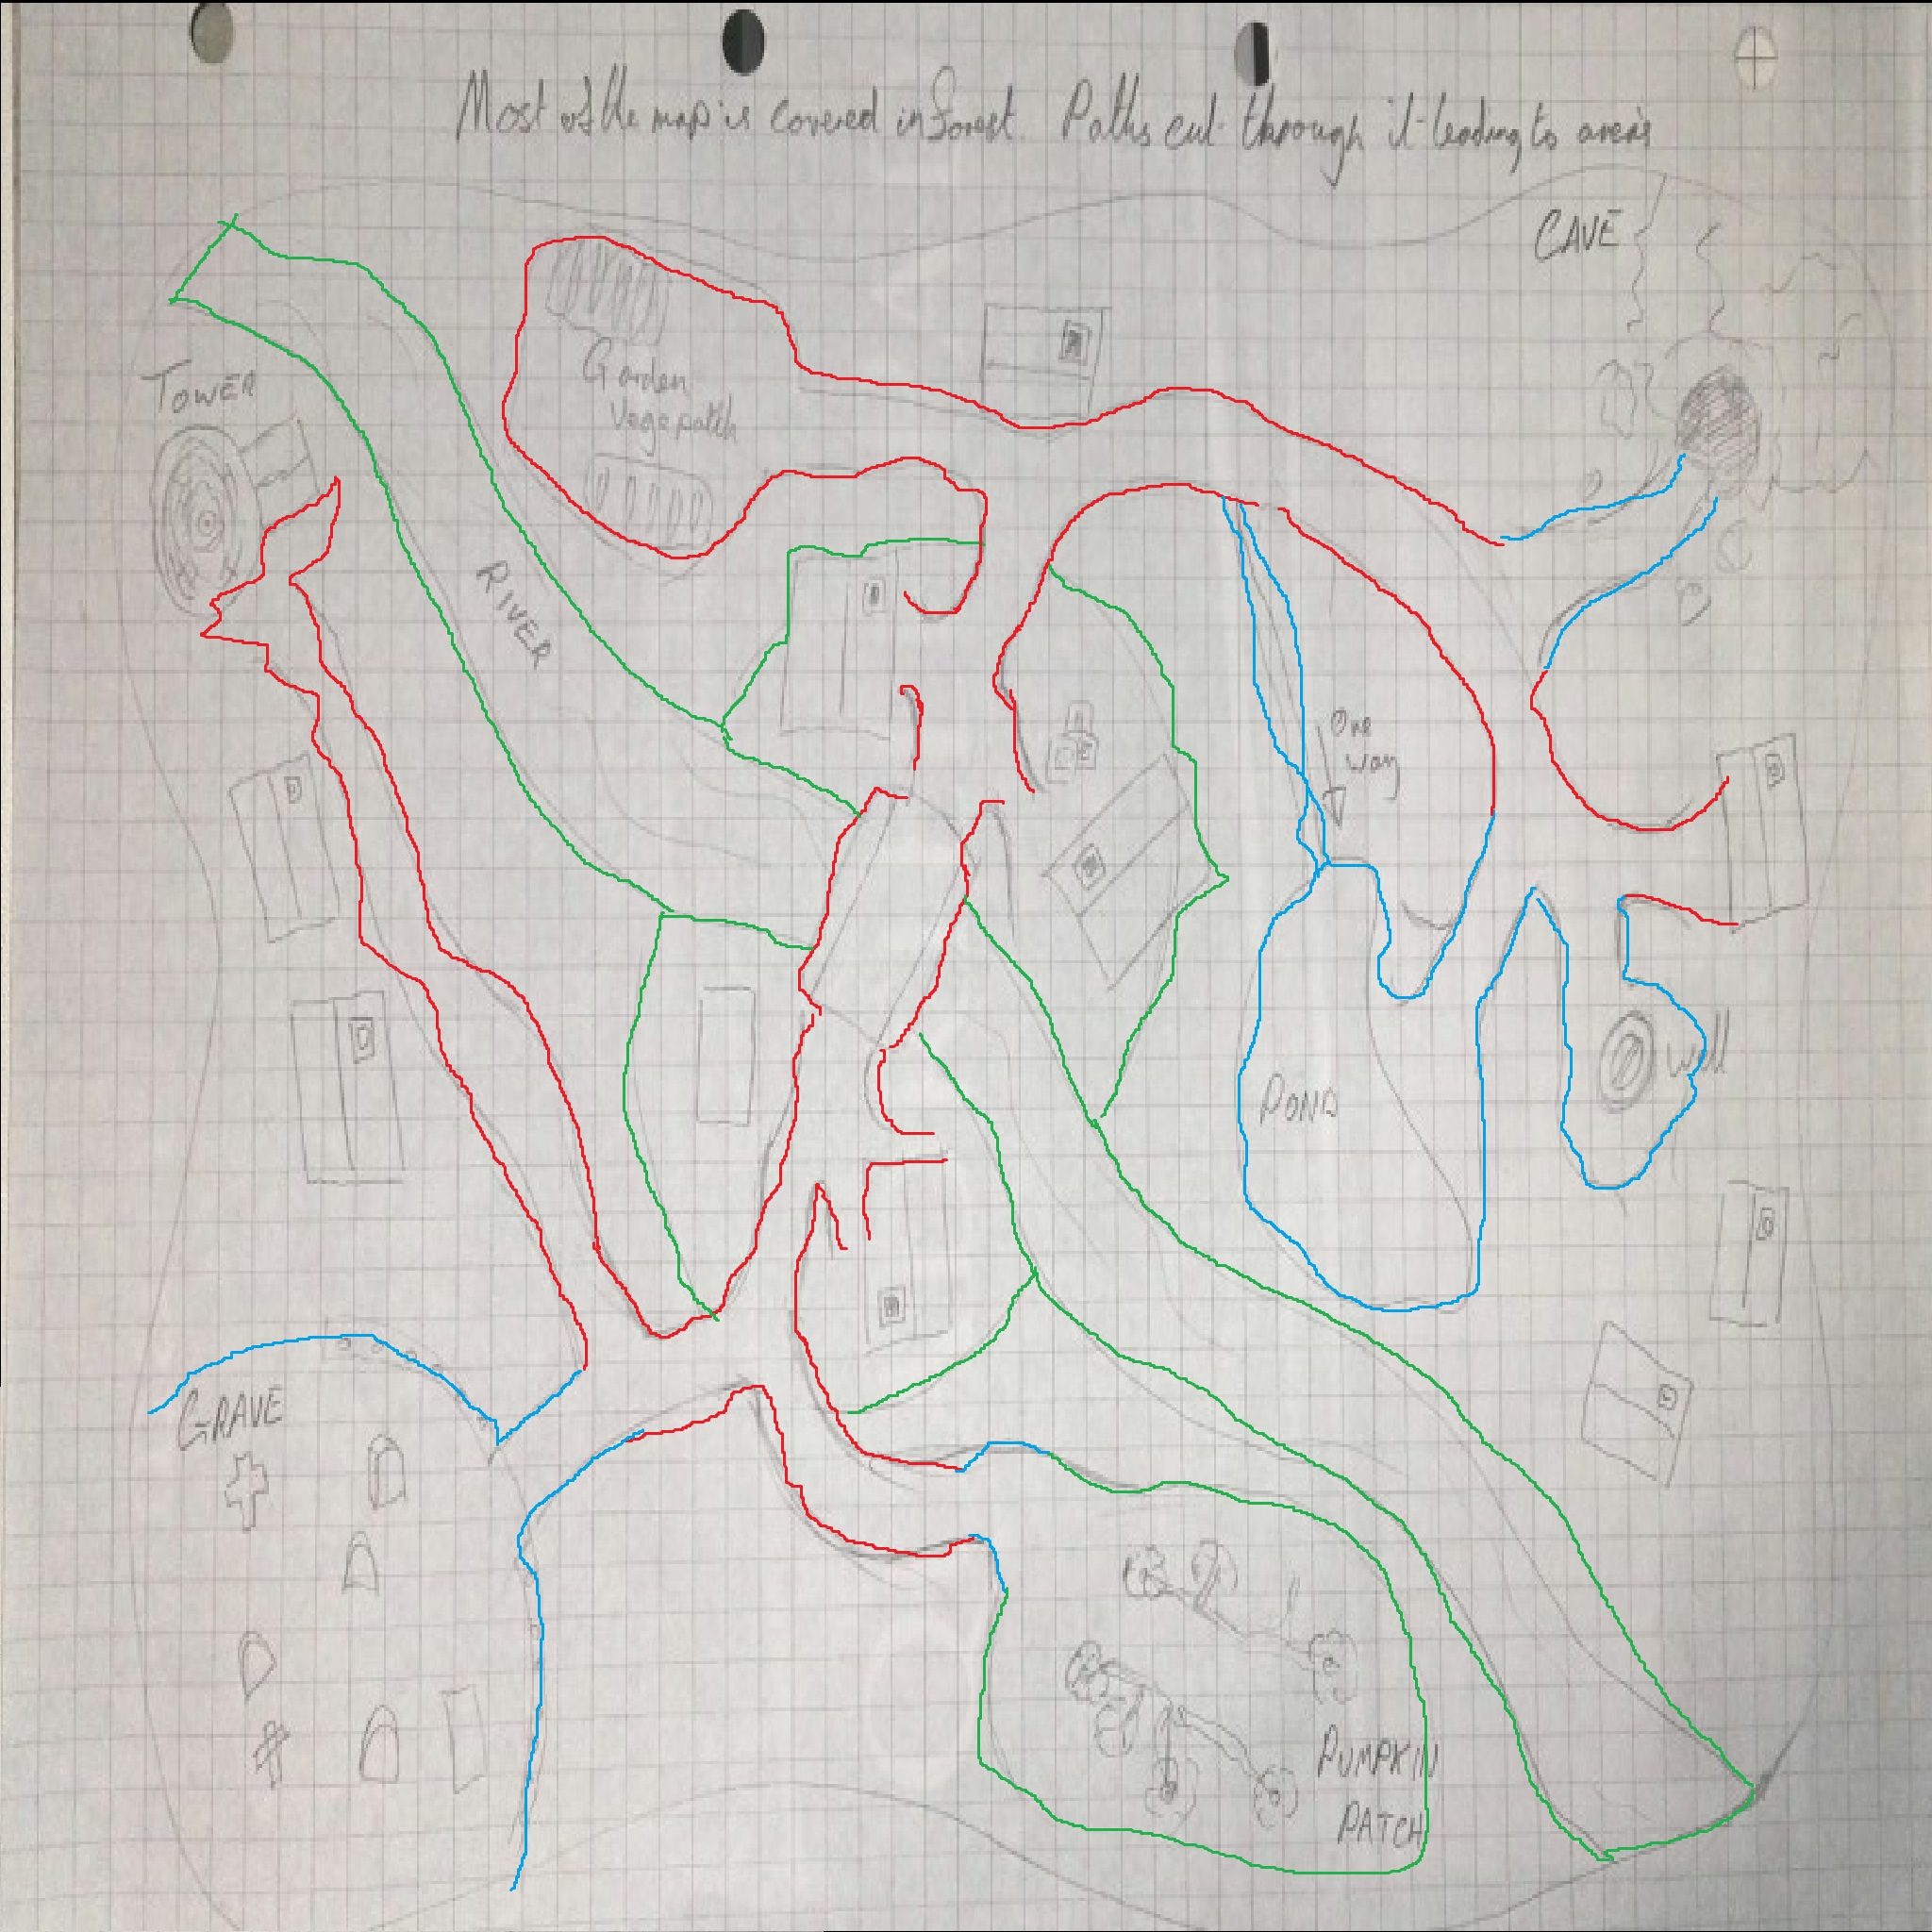 Most of the map is covered in forest. Paths cut through it leading to areas
CAVE
TOWER
Garden
Vege patch
RIVER
One
way
POND
Well
GRAVE
PUMPKIN
PATCH